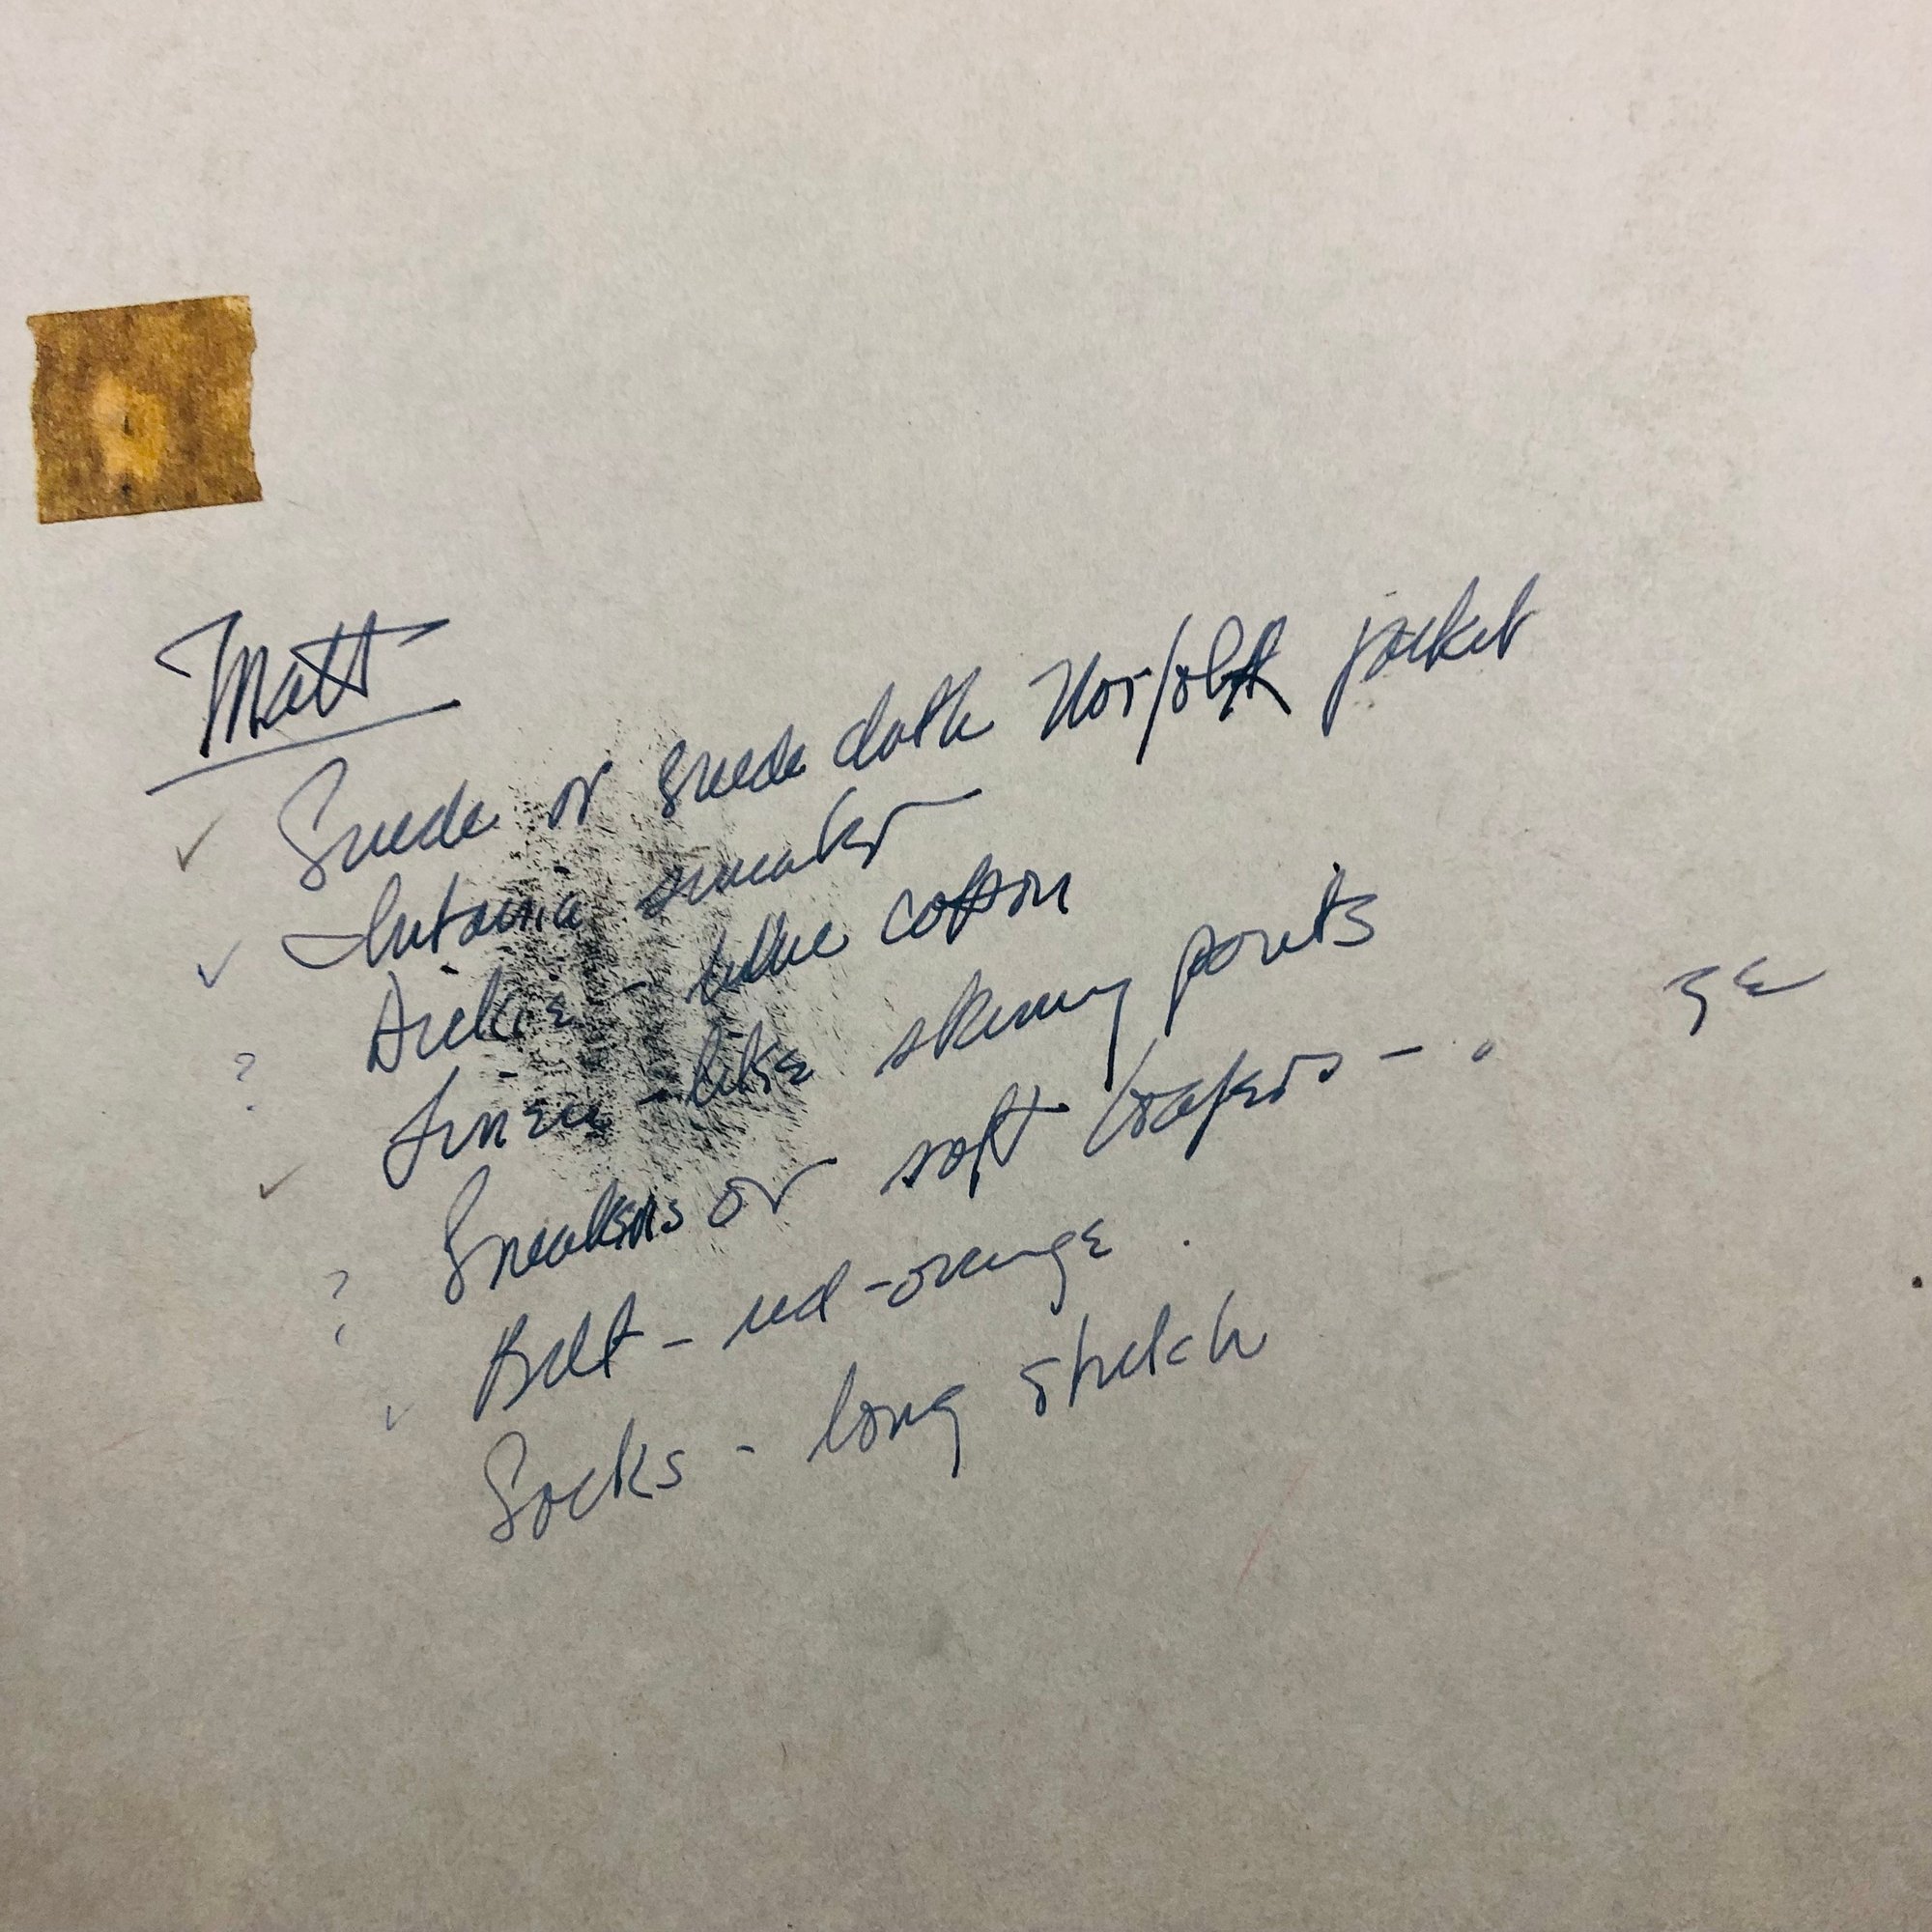 Matt
✓ Suede or suede cloth Norfolk jacket
✓ sweater
? Dickie - blue cotton
✓ Linen-like skinny pants
? Sneakers or soft loafers -
✓ Belt - red-orange
Socks - long stretch